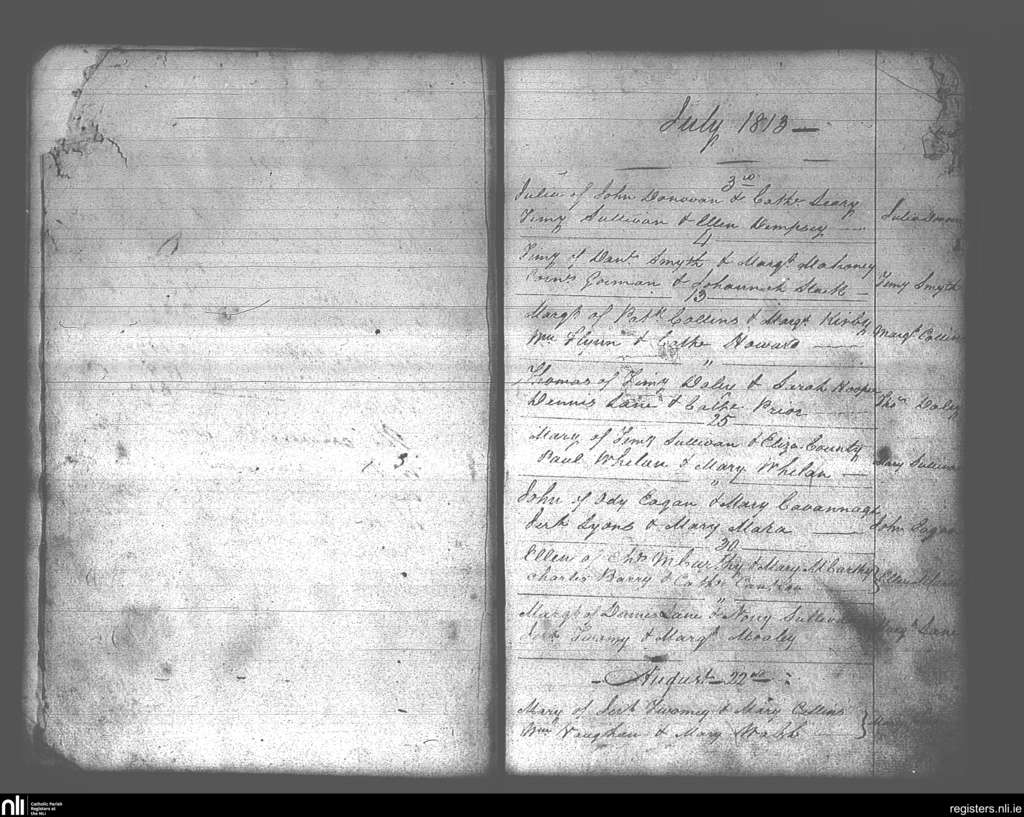 July 1813 —
3rd
Julia of John Donovan & Cathe Leary
Julia Donovan
Timy Sullivan & Ellen Dempsey
4
Timy of Danl Smyth & Margt Mahoney
Timy Smyth
Corns Gorman & Johannah Slack
13
Margt of Patk Collins & Margt Kirby
Margt Collins
Wm Flynn & Cathe Howard
"
Thomas of Timy Daley & Sarah Hooper
Thos Daley
Dennis Lane & Cathe Prior
25
Mary of Timy Sullivan & Eliza County
Mary Sullivan
Paul Whelan & Mary Whelan
"
John of Ody Eagan & Mary Cavannagh
John Eagan
Jerh Lyons & Mary Mara
30
Ellen of Chs McCarthy & Mary McCarthy
Ellen
Charles Barry & Cathe
"
Margt of Dennis Lane & Nory Sullivan
Margt Lane
Jerh Twomy & Margt Mealey
— August 22nd :
Mary of Jerh Twomey & Mary Collins
Mary
Wm Vaughan & Mary Walsh
nli
Catholic Parish
Registers at
the NLI
registers.nli.ie